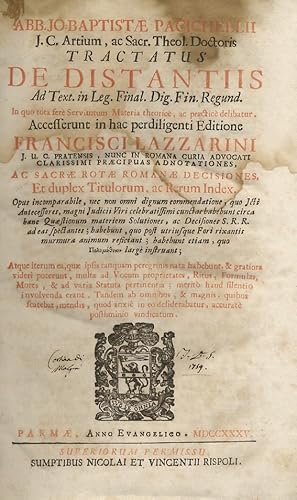 ABB. JO: BAPTISTÆ PACICHELLII
J. C. Artium, ac Sacr. Theol. Doctoris
TRACTATUS
DE DISTANTIIS
Ad Text. in Leg. Final. Dig. Fin. Regund.
In quo tota ferè Servitutum Materia theoricè, ac practicè delibatur.
Accesserunt in hac perdiligenti Editione
FRANCISCI LAZZARINI
J. U. C. PRATENSIS, NUNC IN ROMANA CURIA ADVOCATI
CLARISSIMI PRÆCIPUÆ ADNOTATIONES,
AC SACRÆ ROTÆ ROMANÆ DECISIONES,
Et duplex Titulorum, ac Rerum Index.
Opus incomparabile, nec non omni dignum commendatione, quo Jsti
Antecessores, magni Judicii Viri celebratissimi cunctas habebunt circa
hanc Quæstionum materiem Solutiones, ac Decisiones S. R. R.
ad eas spectantes; habebunt, quo post utriusque Fori rixantis
murmura animum reficiant; habebunt etiam, quo
largè instruant;
Atque iterum ea, quæ ipsis tanquam peregrina nata habebunt, & gratiora
videri poterunt, multa ad Vocum proprietates, Ritus, Formulas,
Mores, & ad varia Statuta pertinentia; meritò haud silentio
involvenda erant. Tandem ab omnibus, & magnis, quibus
scatebat, mendis, quod anxiè in eo desiderabatur, accuratè
postliminio vindicatum.
1769.
PARMÆ, ANNO EVANGELICO. MDCCXXXV.
SUPERIORUM PERMISSU.
SUMPTIBUS NICOLAI ET VINCENTII RISPOLI.